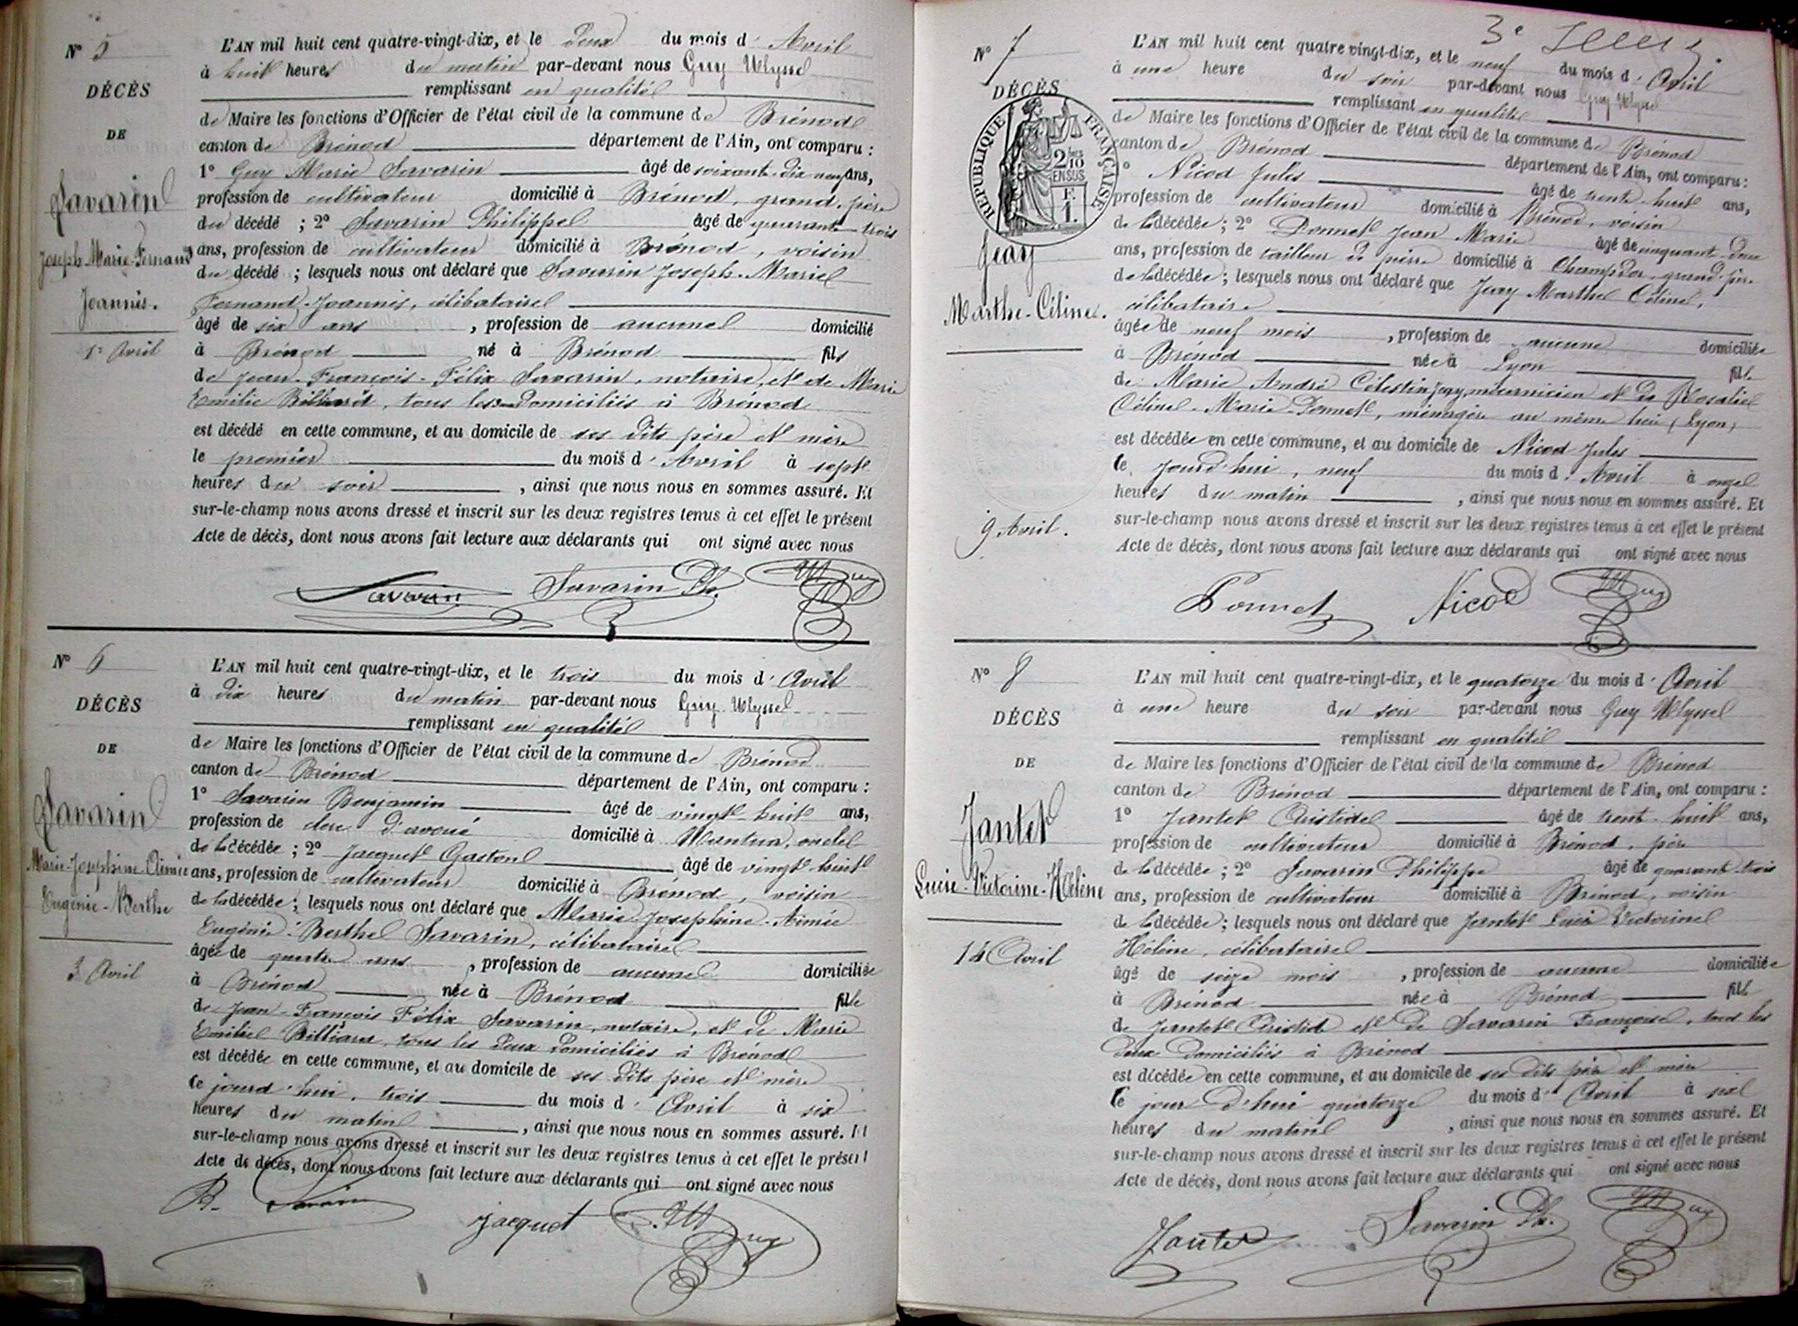 N° 5
DÉCÈS
DE
Savarin
Joseph-Marie-Fernand
Joannis.
1er Avril
L'AN mil huit cent quatre-vingt-dix, et le deux du mois d'Avril
à huit heures du matin par-devant nous Guy Ulysse
remplissant en qualité
de Maire les fonctions d'Officier de l'état civil de la commune de Brénod
canton de Brénod département de l'Ain, ont comparu :
1° Guy Marie Savarin âgé de soixante-dix-neuf ans,
profession de cultivateur domicilié à Brénod, grand-père
du décédé ; 2° Savarin Philippe âgé de quarante-trois
ans, profession de cultivateur domicilié à Brénod, voisin
du décédé ; lesquels nous ont déclaré que Savarin Joseph-Marie
Fernand-Joannis, célibataire
âgé de six ans , profession de aucune domicilié
à Brénod né à Brénod fils
de Jean-François-Félix Savarin, notaire, et de Marie
Emilie Billiard, tous les domiciliés à Brénod
est décédé en cette commune, et au domicile de ses dits père et mère
le premier du mois d'Avril à sept
heures du soir , ainsi que nous nous en sommes assuré. Et
sur-le-champ nous avons dressé et inscrit sur les deux registres tenus à cet effet le présent
Acte de décès, dont nous avons fait lecture aux déclarants qui ont signé avec nous
Savarin Savarin Ph. Guy
N° 6
DÉCÈS
DE
Savarin
Marie-Josephine-Aimée
Eugénie-Berthe
3 Avril
L'AN mil huit cent quatre-vingt-dix, et le trois du mois d'Avril
à dix heures du matin par-devant nous Guy Ulysse
remplissant en qualité
de Maire les fonctions d'Officier de l'état civil de la commune de Brénod
canton de Brénod département de l'Ain, ont comparu :
1° Savarin Benjamin âgé de vingt-huit ans,
profession de clerc d'avoué domicilié à Nantua, oncle
de la décédée ; 2° Jacquet Gaston âgé de vingt-huit
ans, profession de cultivateur domicilié à Brénod, voisin
de la décédée ; lesquels nous ont déclaré que Marie Josephine-Aimée
Eugénie-Berthe Savarin, célibataire
âgée de quatre ans , profession de aucune domiciliée
à Brénod née à Brénod fille
de Jean-François Félix Savarin, notaire, et de Marie
Emilie Billiard, tous les deux domiciliés à Brénod
est décédée en cette commune, et au domicile de ses dits père et mère
ce jourd'hui, trois du mois d'Avril à six
heures du matin , ainsi que nous nous en sommes assuré. Et
sur-le-champ nous avons dressé et inscrit sur les deux registres tenus à cet effet le présent
Acte de décès, dont nous avons fait lecture aux déclarants qui ont signé avec nous
B. Savarin Jacquet Guy
3e
N° 7
DÉCÈS
RÉPUBLIQUE FRANÇAISE
2 10 EN SUS
F. 1.
Jeay
Marthe-Céline.
9 Avril.
L'AN mil huit cent quatre vingt-dix, et le neuf du mois d'Avril
à une heure du soir par-devant nous Guy Ulysse
remplissant en qualité
de Maire les fonctions d'Officier de l'état civil de la commune de Brénod
canton de Brénod département de l'Ain, ont comparu :
1° Nicod Jules âgé de trente-huit ans,
profession de cultivateur domicilié à Brénod, voisin
de la décédée ; 2° Bonnet Jean Marie âgé de cinquante-deux
ans, profession de tailleur de pierre domicilié à Champdor, grand-père
de la décédée ; lesquels nous ont déclaré que Jeay Marthe Céline,
célibataire
âgée de neuf mois , profession de aucune domiciliée
à Brénod née à Lyon fille
de Marie André Célestin Jeay, mécanicien et de Rosalie
Céline-Marie Bonnet, ménagère au même lieu (Lyon)
est décédée en cette commune, et au domicile de Nicod Jules
ce jourd'hui, neuf du mois d'Avril à onze
heures du matin , ainsi que nous nous en sommes assuré. Et
sur-le-champ nous avons dressé et inscrit sur les deux registres tenus à cet effet le présent
Acte de décès, dont nous avons fait lecture aux déclarants qui ont signé avec nous
Bonnet Nicod Guy
N° 8
DÉCÈS
DE
Jantet
Lucie-Victorine-Hélène
14 Avril
L'AN mil huit cent quatre-vingt-dix, et le quatorze du mois d'Avril
à une heure du soir par-devant nous Guy Ulysse
remplissant en qualité
de Maire les fonctions d'Officier de l'état civil de la commune de Brénod
canton de Brénod département de l'Ain, ont comparu :
1° Jantet Aristide âgé de trente-huit ans,
profession de cultivateur domicilié à Brénod, père
de la décédée ; 2° Savarin Philippe âgé de quarante-trois
ans, profession de cultivateur domicilié à Brénod, voisin
de la décédée ; lesquels nous ont déclaré que Jantet Lucie Victorine
Hélène, célibataire
âgé de seize mois , profession de aucune domiciliée
à Brénod née à Brénod fille
de Jantet Aristide et de Savarin Françoise, tous les
deux domiciliés à Brénod
est décédée en cette commune, et au domicile de ses dits père et mère
ce jour d'hui quatorze du mois d'Avril à six
heures du matin , ainsi que nous nous en sommes assuré. Et
sur-le-champ nous avons dressé et inscrit sur les deux registres tenus à cet effet le présent
Acte de décès, dont nous avons fait lecture aux déclarants qui ont signé avec nous
Jantet Savarin Ph. Guy